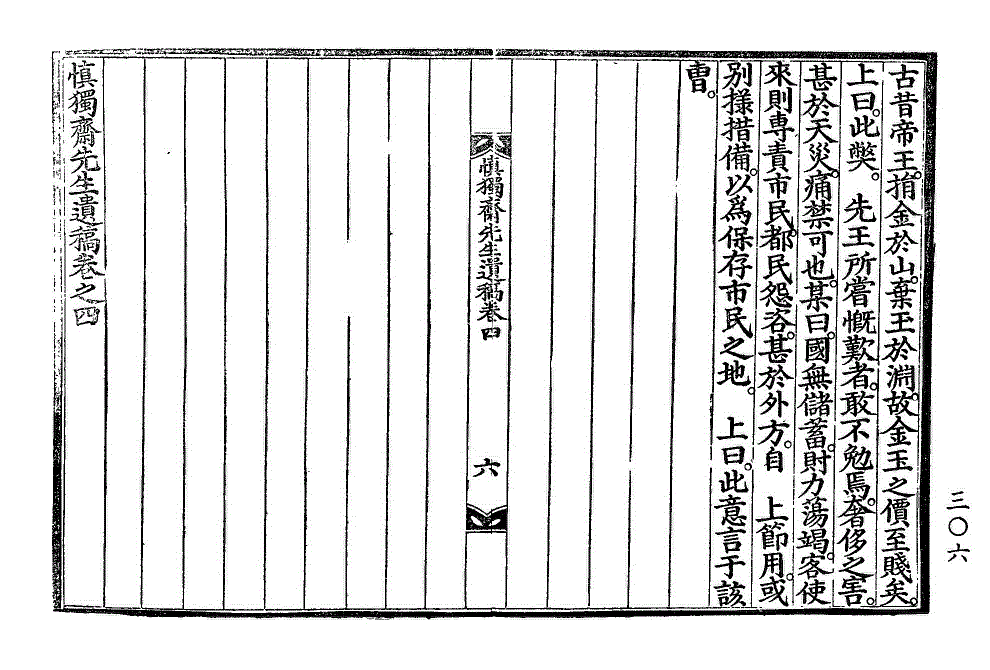 古昔帝王。捐金於山。棄玉於淵。故金玉之價至賤矣。
上曰。此弊。 先王所嘗慨歎者。敢不勉焉。奢侈之害。
甚於天災。痛禁可也。某曰。國無儲蓄。財力蕩竭。客使
來則專責市民。都民怨咨。甚於外方。自 上節用。或
別㨾措備。以爲保存市民之地。 上曰。此意言于該
曹。
愼獨齋先生遺稿卷四
六
愼獨齋先生遺稿卷之四
三〇六